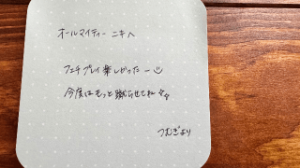 オールマイティー ニキへ
フェチプレイ楽しかったー☺
今度はもっと蹴らせてね
つむぎより